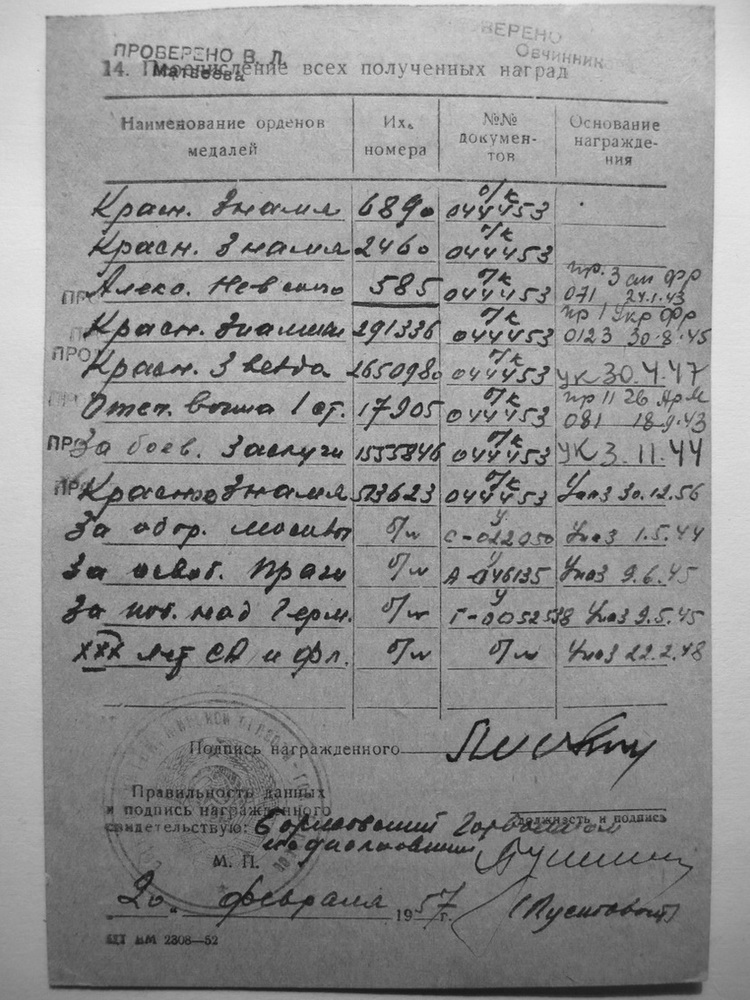 ПРОВЕРЕНО В. Л.
Матвеева
ВЕРЕНО
Овчинник
14. Перечисление всех полученных наград
Наименование орденов медалей Их номера №№ документов Основание награждения
Красн. Знамя 6890 о/к 044453
Красн. Знамя 2460 о/к 044453
Алекс. Невского 585 о/к 044453 пр. 3 фр 071 24.1.43
Красн. Знамени 291336 о/к 044453 пр 1 Укр фр 0123 30.8.45
Красн. Звезда 2650980 о/к 044453 УК 30.4.47
Отеч. война 1 ст. 17905 о/к 044453 пр 11 26 Арм 081 18.9.43
За боев. заслуги 1555846 о/к 044453 УК 3.11.44
Красное Знамя 513623 о/к 044453 Указ 30.12.56
За обор. Москвы б/н У С-022050 Указ 1.5.44
За освоб. Праги б/н У А-046135 Указ 9.6.45
За поб. над Герм. б/н У Г-0052538 Указ 9.5.45
XXX лет СА и фл. б/н б/н Указ 22.2.48
Подпись награжденного
Правильность данных
и подпись награжденного должность и подпись
свидетельствую: Борисовский Горвоенком
подполковник
М. П.
„20“ февраля 1957 г.
ЦТ ВМ 2308—52